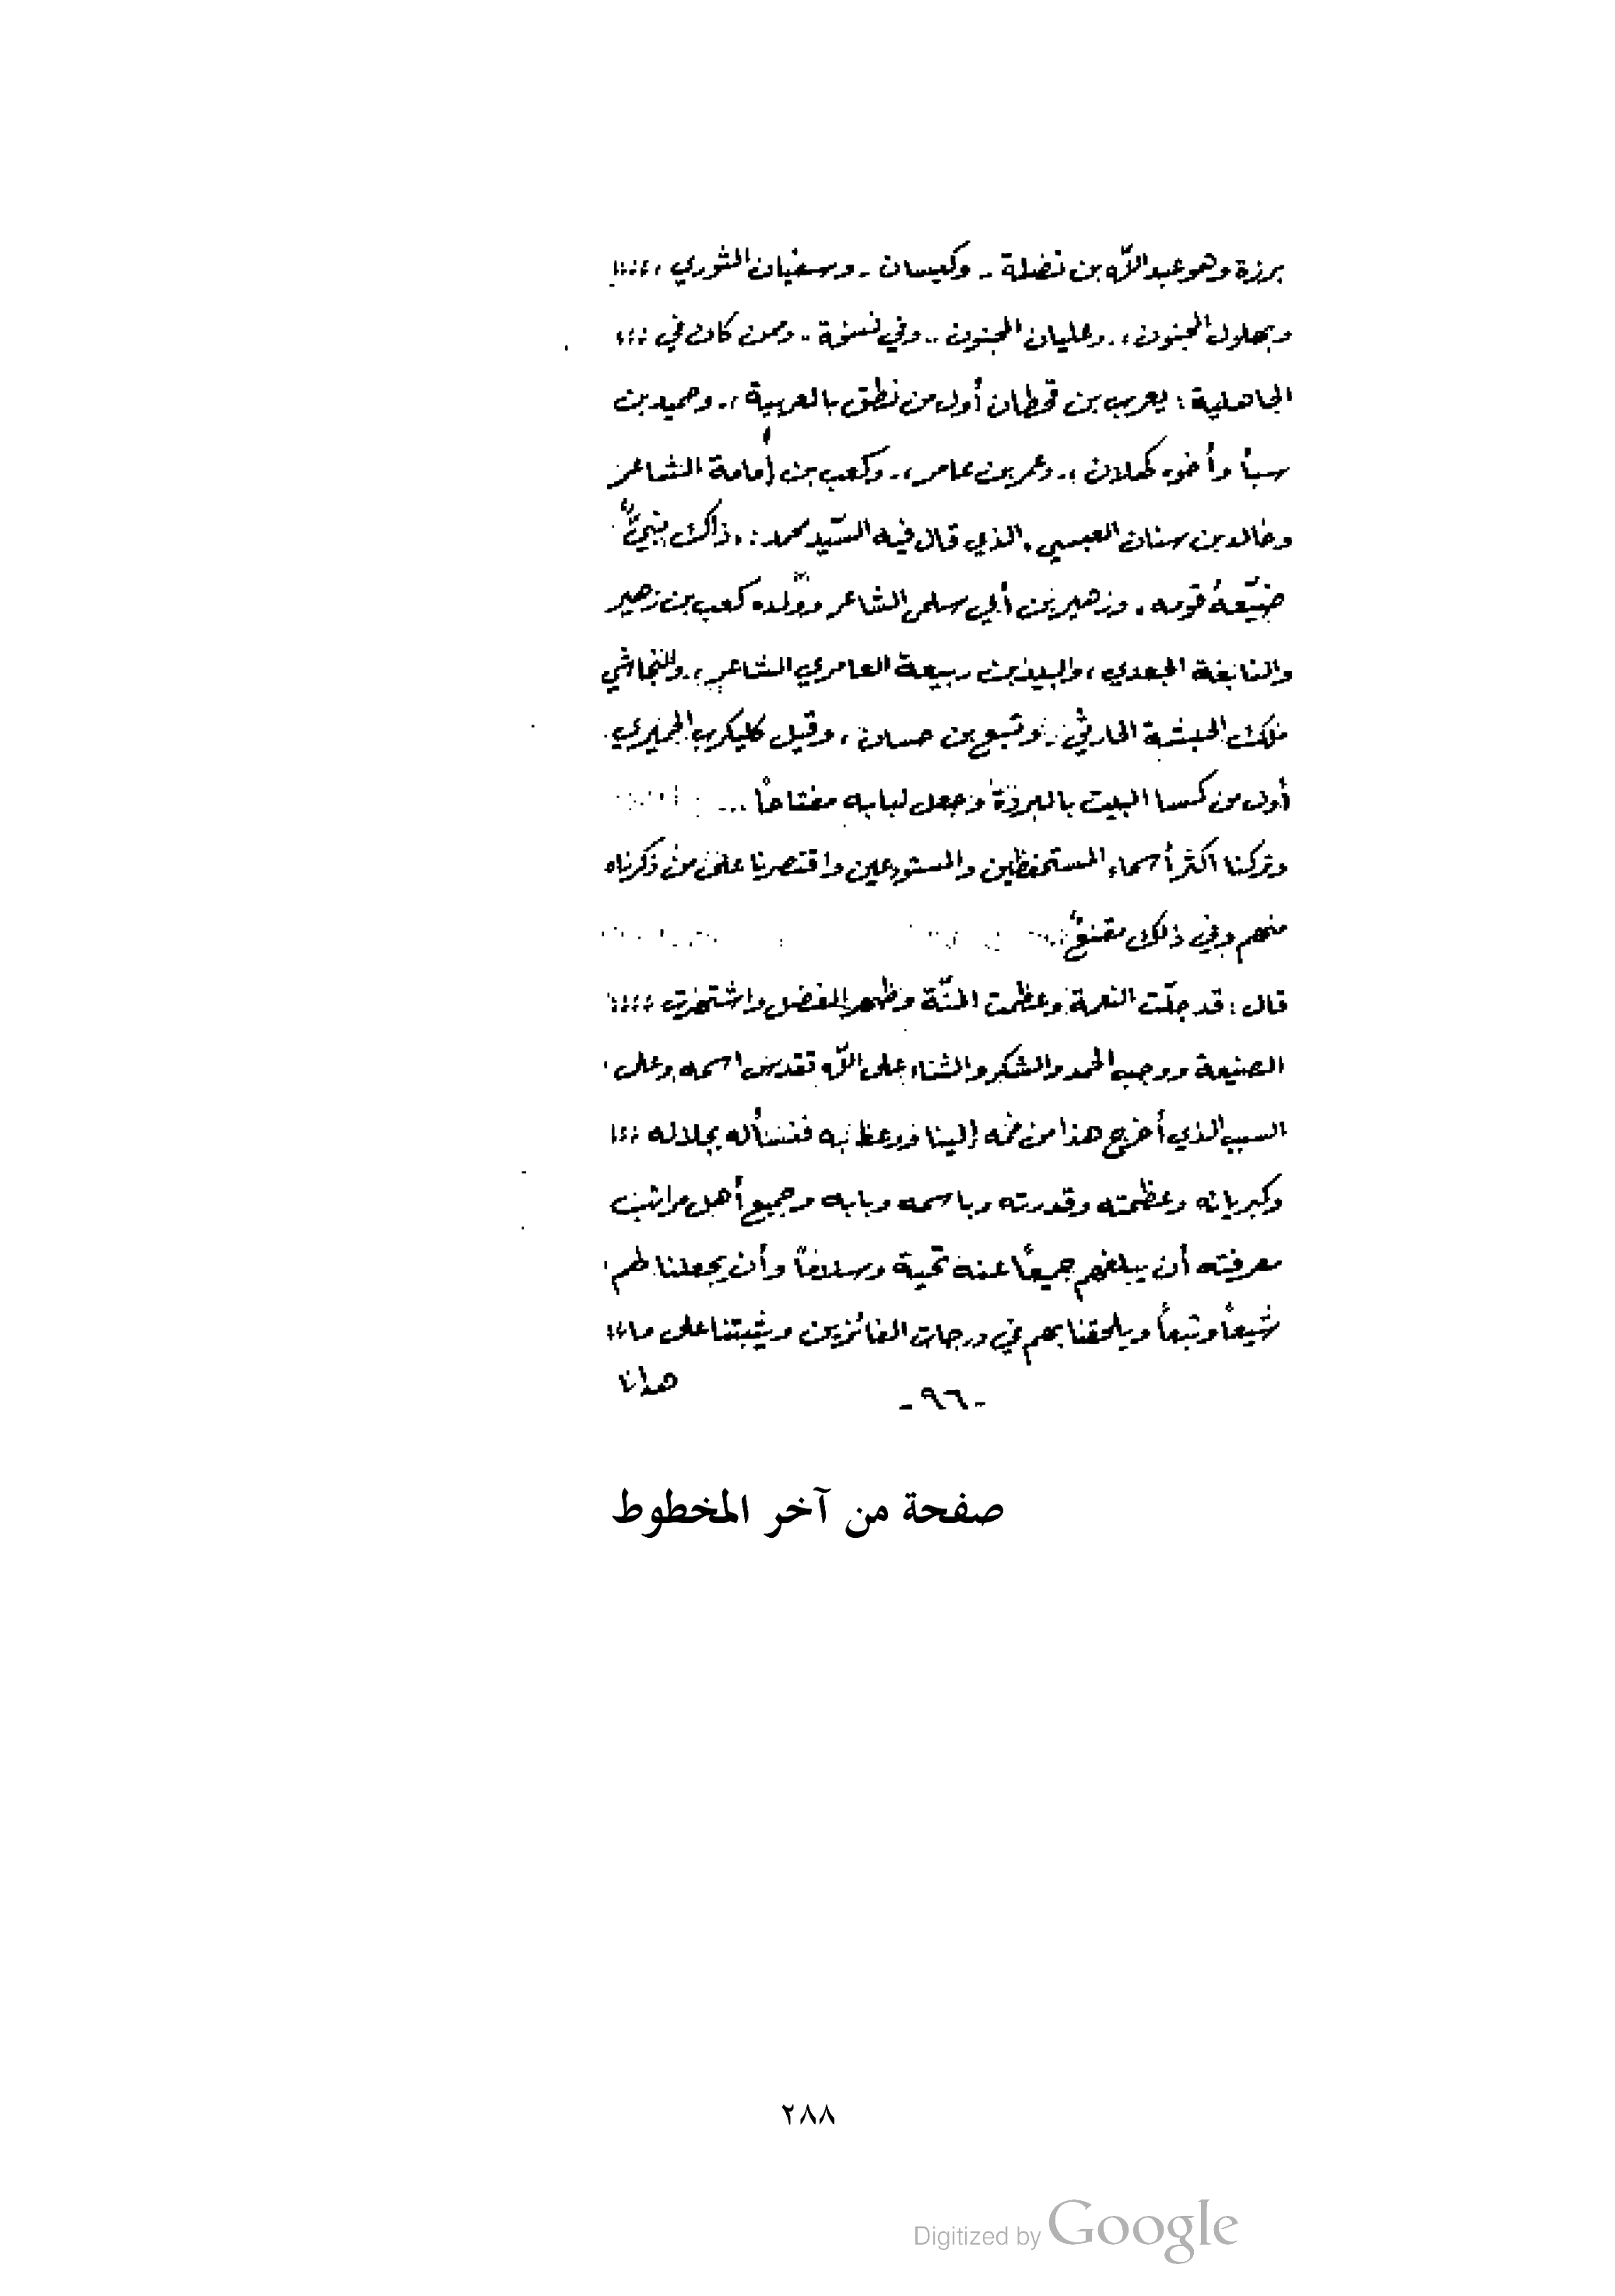 برزة وهو عبد اللّه بن نضلة - وكيسان - وسفيان الثوري ،
وبهلول المجنون ، وعليان المجنون .. وفي نسخة .. وممن كان في
الجاهلية : يعرب بن قحطان أول من نطق بالعربية ، وحميد بن
سبأ وأخوه كهلان ، وعمر بن عامر ، وكعب بن أمامة الشاعر
وخالد بن سنان العبسي . الذي قال فيه السّيد محمد : . ذاك نبيٌّ
ضيّعهُ قومه . وزهير بن أبي سلمى الشاعر وولده كعب بن زهير
والنابغة الجعدي ، ولبيد بن ربيعة العامري الشاعر ، والنجاشي
ملك الحبشة الحارثي . وتبع بن حسان ، وقيل كليكرب الحميري
أول من كسا البيت بالبردة وجعل لبابه مفتاحاً ...
وتركنا اكثر أسماء المستحفظين والمستودعين واقتصرنا على من ذكرناه
منهم وفي ذلك مقنعٌ
قال : قد جلّت النعمة وعظمت المنّة وظهر الفضل
الصنيعة ووجب الحمد والشكر والثناء على اللّه تقدس اسمه وعلى
السبب الذي أخرج هذا من إلينا به فنسأله بجلاله
وكبريائه وعظمته وقدرته وباسمه وبابه وجميع أهل مراتب
معرفته أن يبلغهم جميعاً عنه تحية وسلاماً وأن يجعلنا لهم
شيعاً وتبعاً ويلحقنا بهم في درجات الفائزين ويثبتنا على ما
هدانا
-٩٦-
صفحة من آخر المخطوط
٢٨٨
Digitized by Google